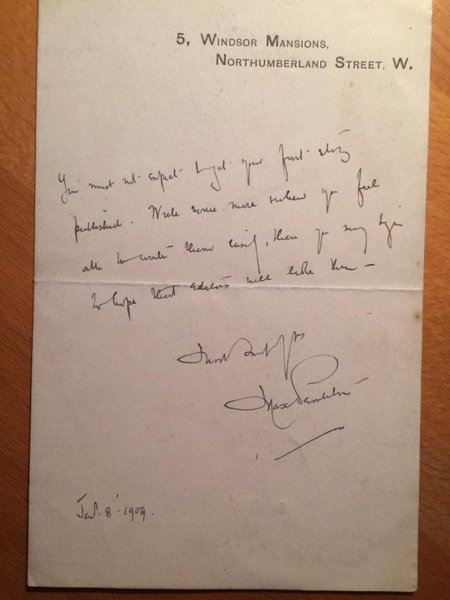 5, WINDSOR MANSIONS,
NORTHUMBERLAND STREET, W.
You must not expect to get your first story
published. Write some more & when you feel
able to write them easily, then you may begin
to hope that editors will take them —
Max Pemberton
Jan. 8. 1909.